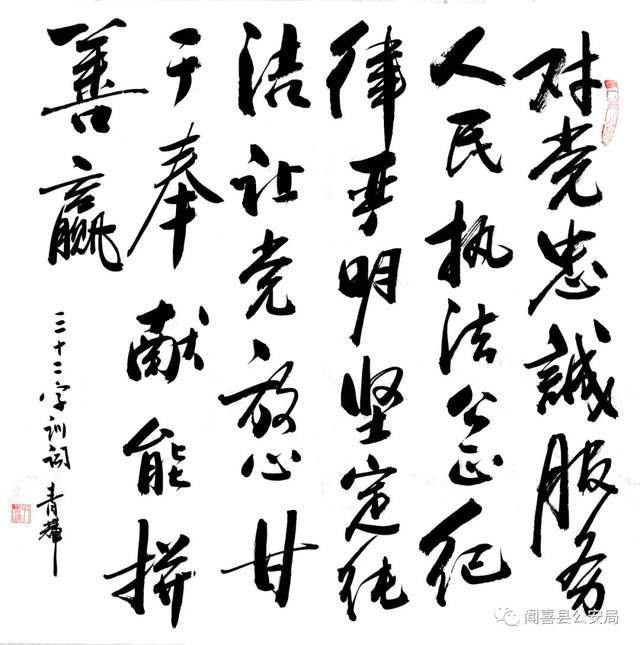 对党忠誠服务
人民执法公正纪
律严明坚定纯
洁让党放心甘
于奉献能拼
善赢
三十二字训词 青
闻喜县公安局